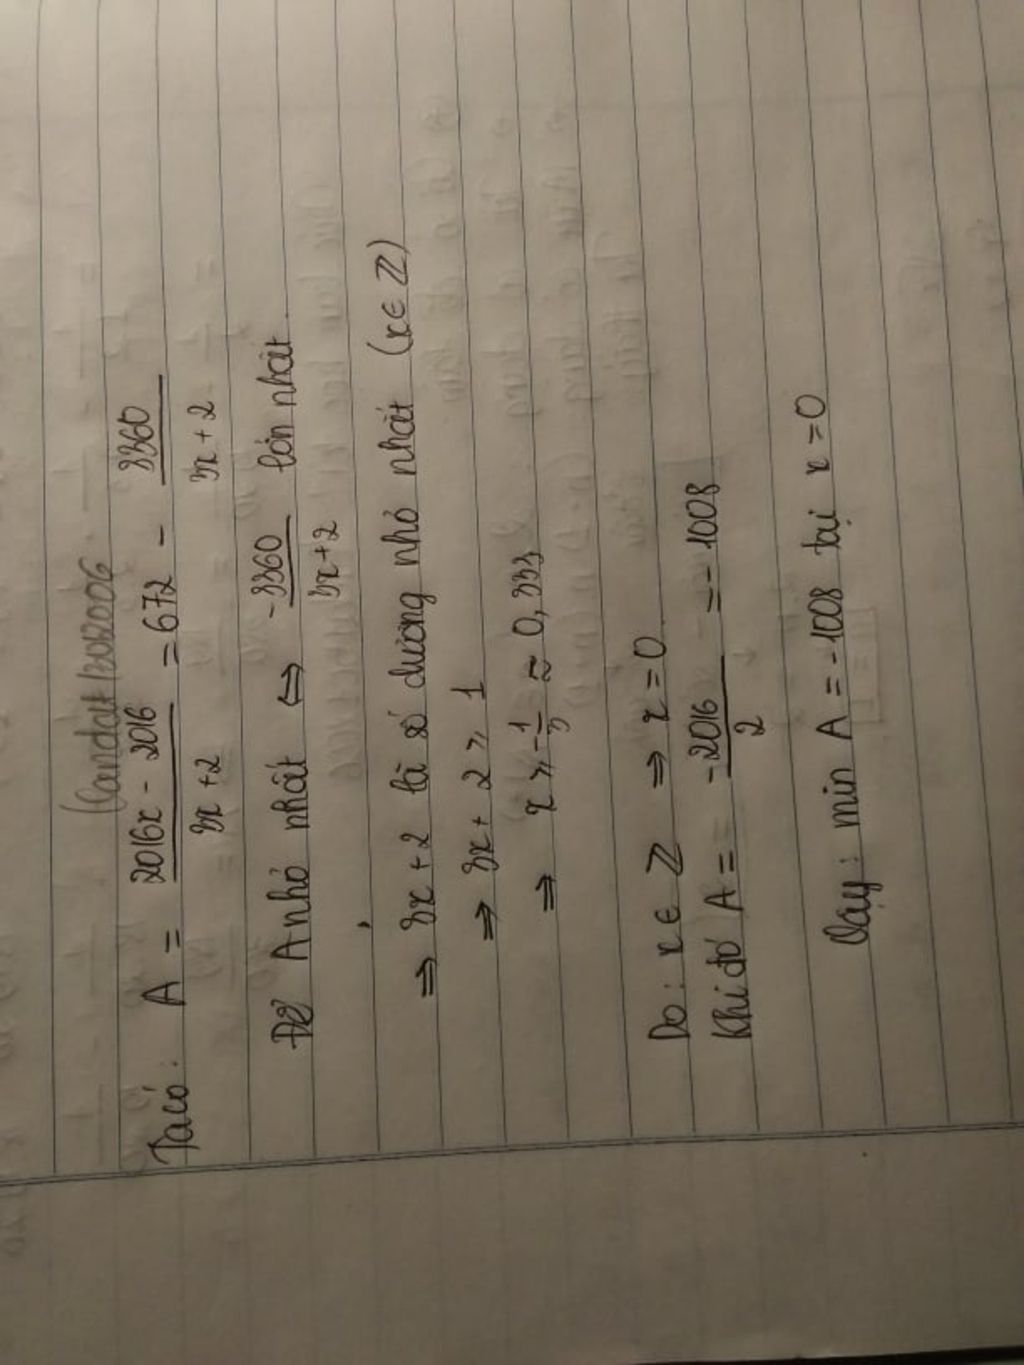 (landat13082006
Ta có: A = \frac{2016x - 2016}{3x + 2} = 672 - \frac{3360}{3x + 2}
Để A nhỏ nhất ⇔ \frac{-3360}{3x+2} lớn nhất
⇒ 3x + 2 là số dương nhỏ nhất (x ∈ ℤ)
⇒ 3x + 2 ⩾ 1
⇒ x ⩾ -\frac{1}{3} ≈ 0,333
Do: x ∈ ℤ ⇒ x = 0
Khi đó A = \frac{-2016}{2} = -1008
Vậy: min A = -1008 tại x = 0